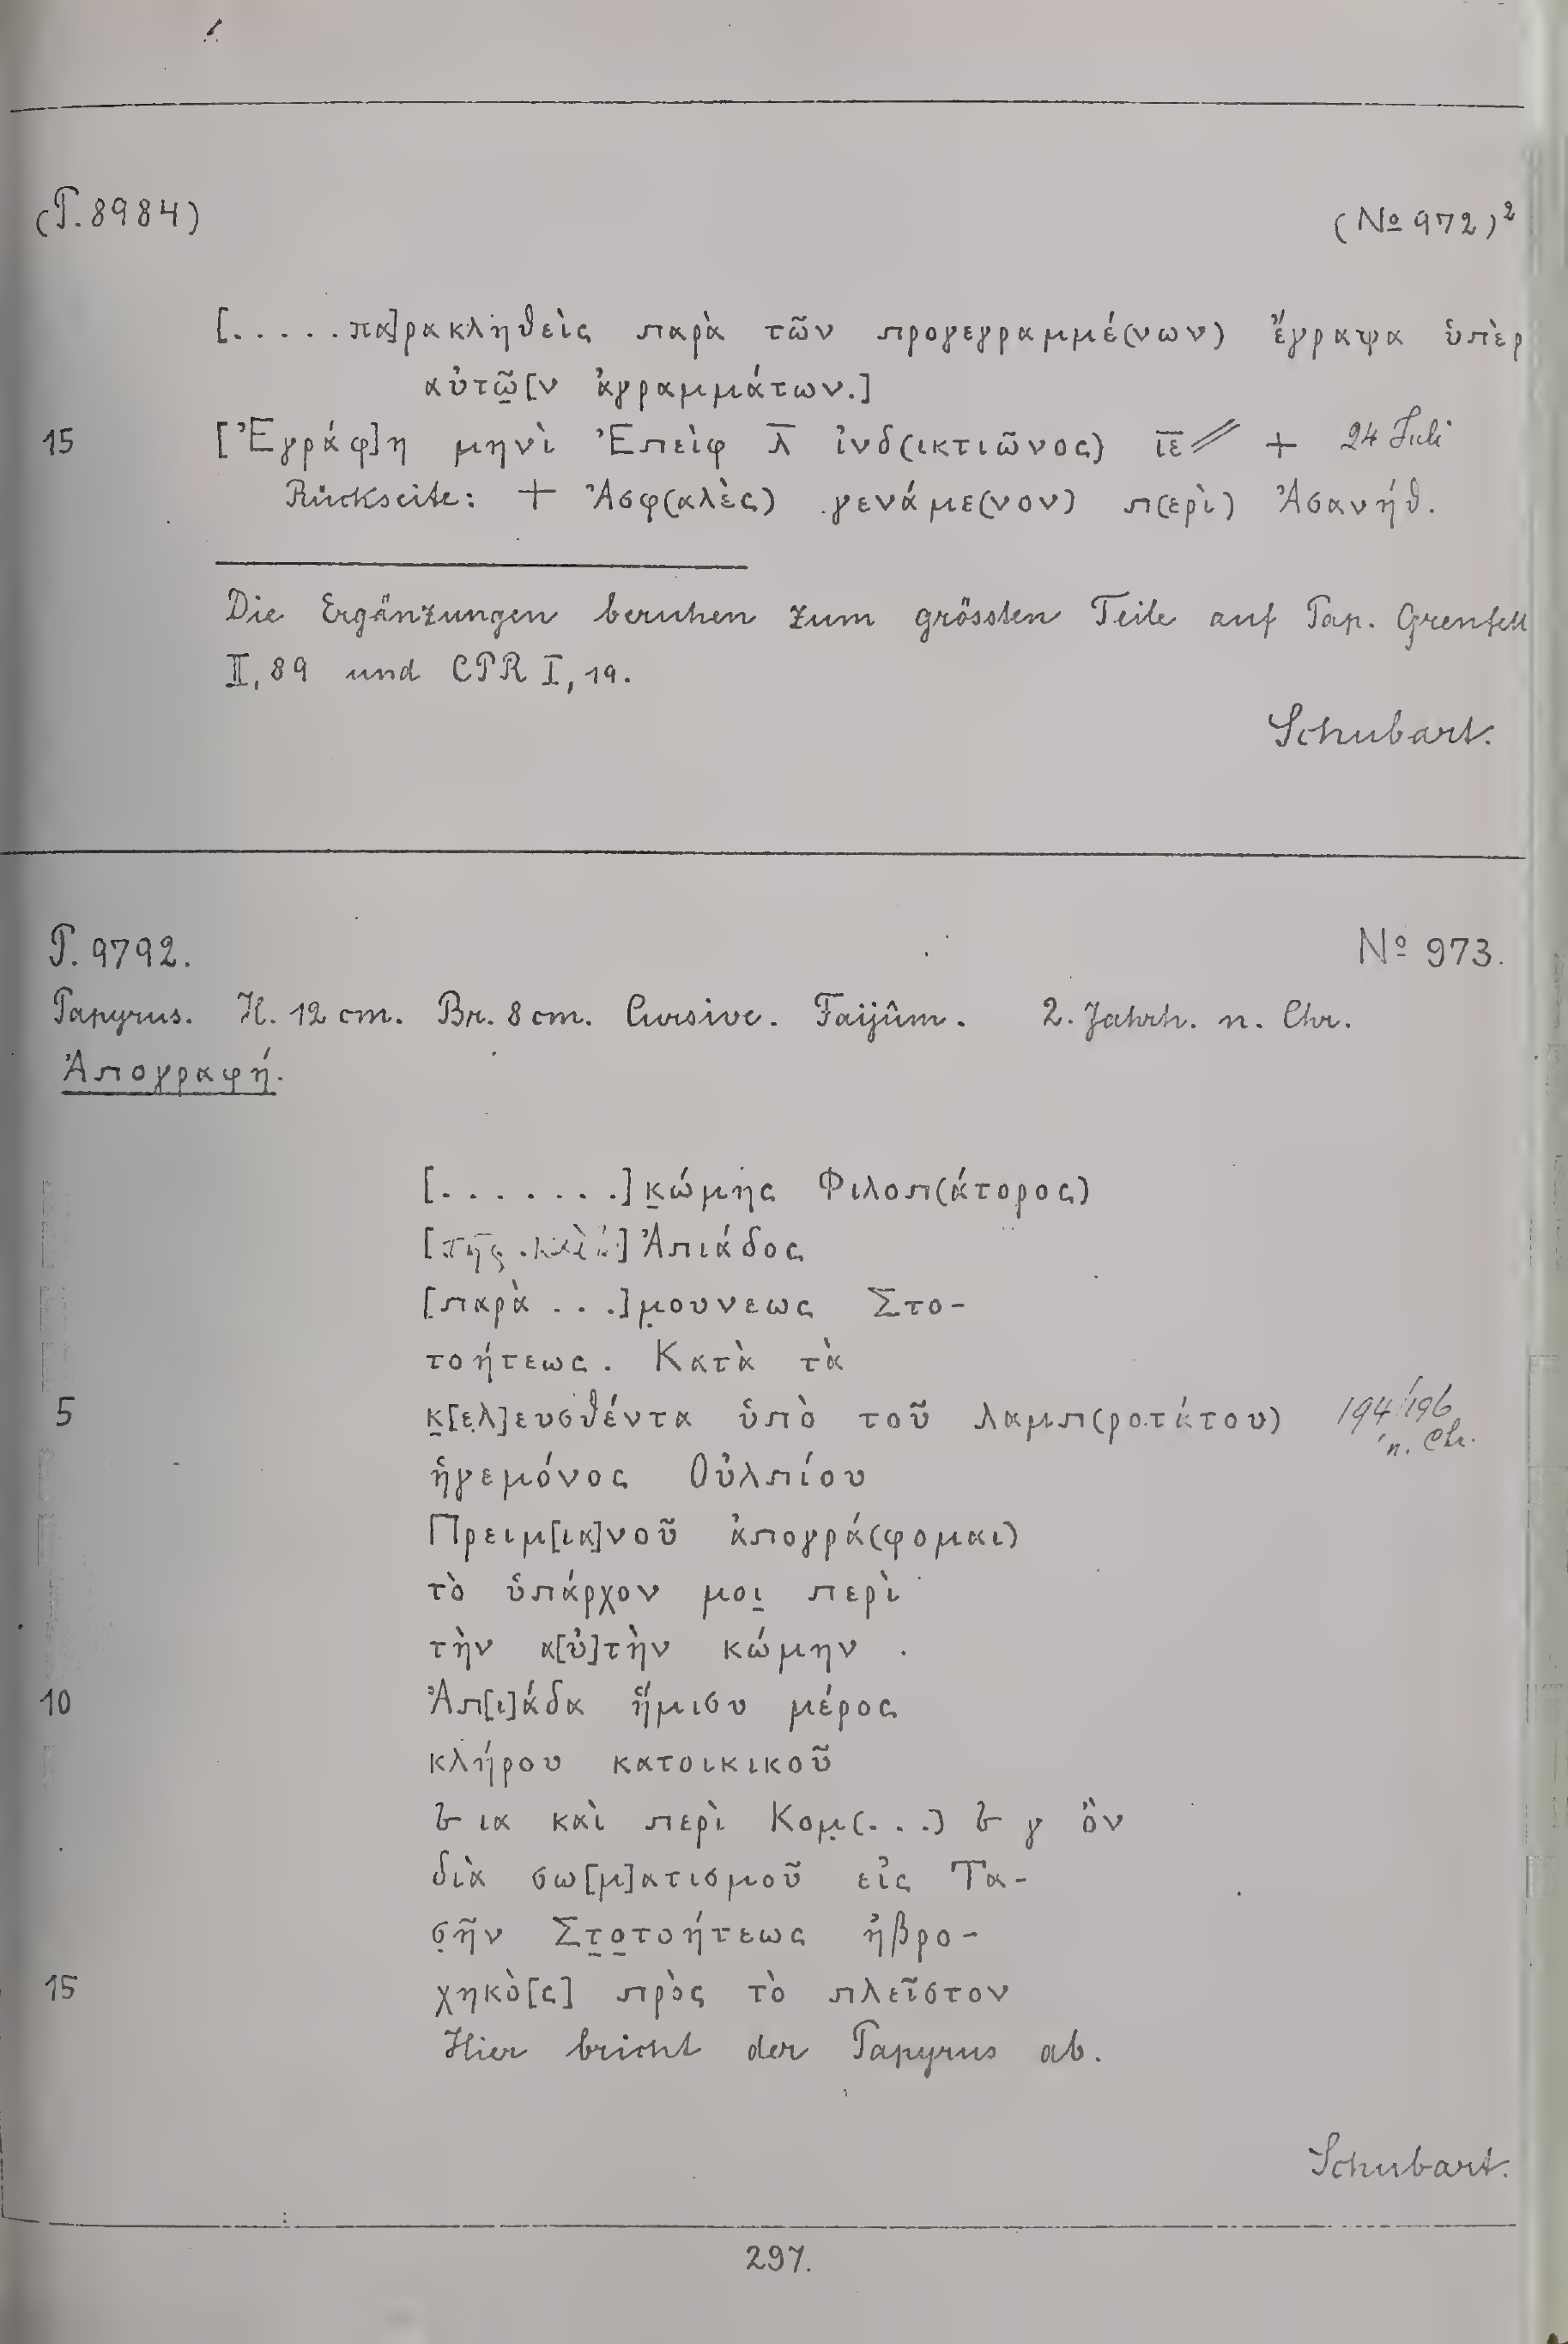 (P. 8984) (No 972)²
[.....πα]ρακληθεὶς παρὰ τῶν προγεγραμμέ(νων) ἔγραψα ὑπὲρ
αὐτῶ[ν ἀγραμμάτων.]
15 [Ἐγράφ]η μηνὶ Ἐπεὶφ λ̅ ἰνδ(ικτιῶνος) ι̅ε̅// + 24 Juli
Rückseite: + Ἀσφ(αλὲς) γενάμε(νον) π(ερὶ) Ἀσανήθ.
Die Ergänzungen beruhen zum grössten Teile auf Pap. Grenfell
II, 89 und CPR I, 19.
Schubart.
P. 9792. No 973.
Papyrus. H. 12 cm. Br. 8 cm. Cursive. Faijûm. 2. Jahrh. n. Chr.
Ἀπογραφή.
[.......]κ̣ώμης Φιλοπ(άτορος)
[τῆς καὶ] Ἀπιάδος
[παρὰ ...]μ̣ουνεως Στο-
τοήτεως. Κατὰ τὰ
5 κ̣[ελ]ευσθέντα ὑπὸ τοῦ λαμπ(ροτάτου) 194/196
n. Chr.
ἡγεμόνος Οὐλπίου
Πρειμ[ια]νοῦ ἀπογρά(φομαι)
τὸ ὑπάρχον μοι̣ περὶ
τὴν α[ὐ]τὴν κώμην
10 Ἀπ[ι]άδα ἥμισυ μέρος
κλήρου κατοικικοῦ
𐅵 ια καὶ περὶ Κομ̣(...) 𐅵 γ ὂν
διὰ σω[μ]ατισμοῦ εἰς Τα-
σ̣ῆν Στ̣ο̣τοήτεως ἠβρο-
15 χηκὸ[ς] πρὸς τὸ πλεῖστον
Hier bricht der Papyrus ab.
Schubart.
297.